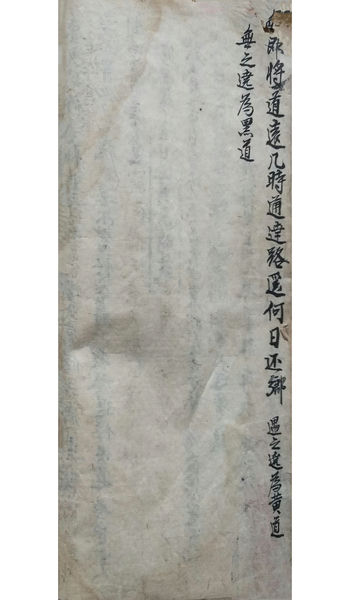 即將道遠几時通達路遥何日还鄉 遇之遶為黄道
無之遶為黑道